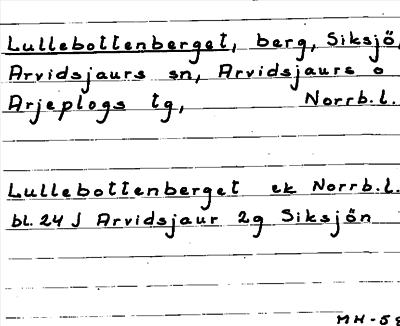 Lullebottenberget, berg, Siksjö,
Arvidsjaurs sn, Arvidsjaurs o
Arjeplogs tg, Norrb.l.
Lullebottenberget ek Norrb.l.
bl. 24 J Arvidsjaur 2g Siksjön
MH-58